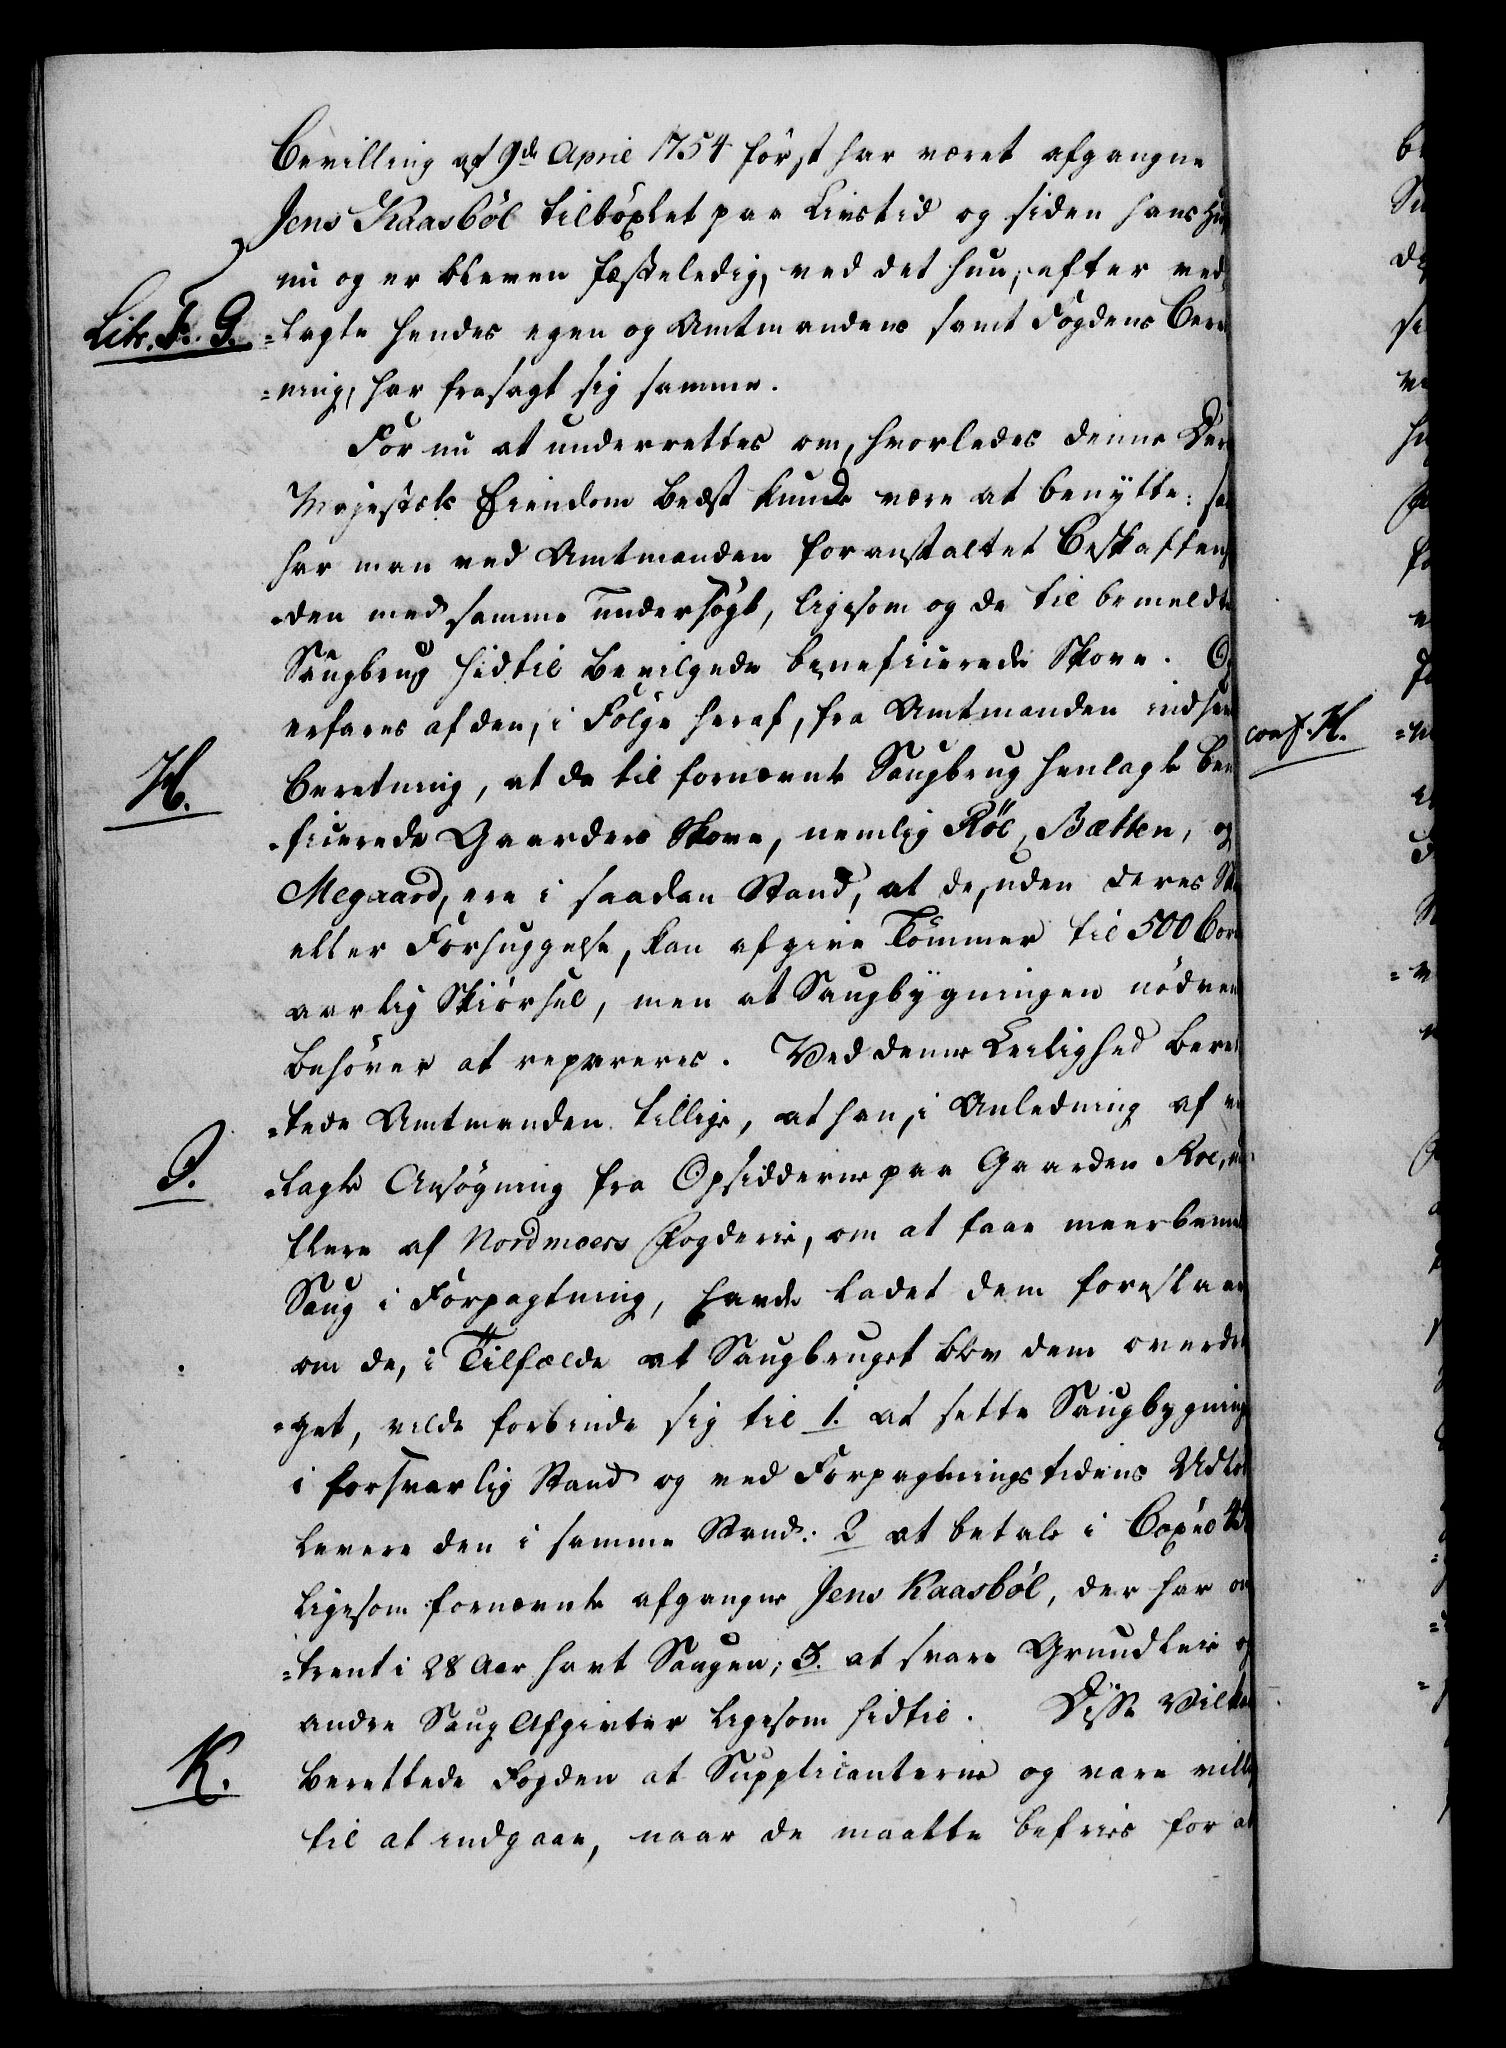 Bevilling af 9de April 1754 först har været afgangne
Jens Kaasböl tilböxlet paa Livstid og siden hans Hu
nu og er bleven fæsteledig, ved det hun, efter ved
Litr. F. G. =lagte hendes egen og Amtmandens samt Fogdens Ber
=ning, har frasagt sig samme.
For nu at underrettes om, hvorledes denne De
Majestæts Eiendom bedst kunde være at benytte: sa
har man ved Amtmanden foranstaltet Beskaffen
=den med samme undersögt, ligesom og de til bemeldte
Saugbrug hidtil bevilgede beneficerede Skove. Og
erfares af den, i Fölge heraf, fra Amtmanden indsen
H. Beretning, at de til fornævnte Saugbrug henlagte ben
=ficerede Gaarders Skove, nemlig Röe, Bætten, og
Megaard, ere i saadan Stand, at de, uden deres Sk
eller Forhuggelse, kan afgive Tömmer til 500 Bor
aarlig Skiörsel, men at Saugbygningen nödven
behöver at repareres. Ved denne Leilighed beret
=tede Amtmanden tillige, at han, i Anledning af ve
I. =lagte Ansögning fra Opsidderne paa Gaarden Roe, m
flere af Nordmoers Fogderie, om at faae meerbemel
Saug i Forpagtning, havde ladet dem foreslaae
om de, i Tilfælde at Saugbruget blev dem overdra
=get, vilde forbinde sig til 1. at sette Saugbygning
i forsvarlig Stand og ved Forpagtningstidens Udlöb
levere den i samme Stand: 2 at betale i Böxel
ligesom fornævnte afgangne Jens Kaasböl, der har om
=trent i 28 Aar havt Saugen; 3. at svare Grundleie og
andre Saug Afgivter ligesom hidtil. Disse Vilka
K. berettede Fogden at Supplicanterne og vare villi
til at indgaae, naar de maatte befries for at
conf. H.